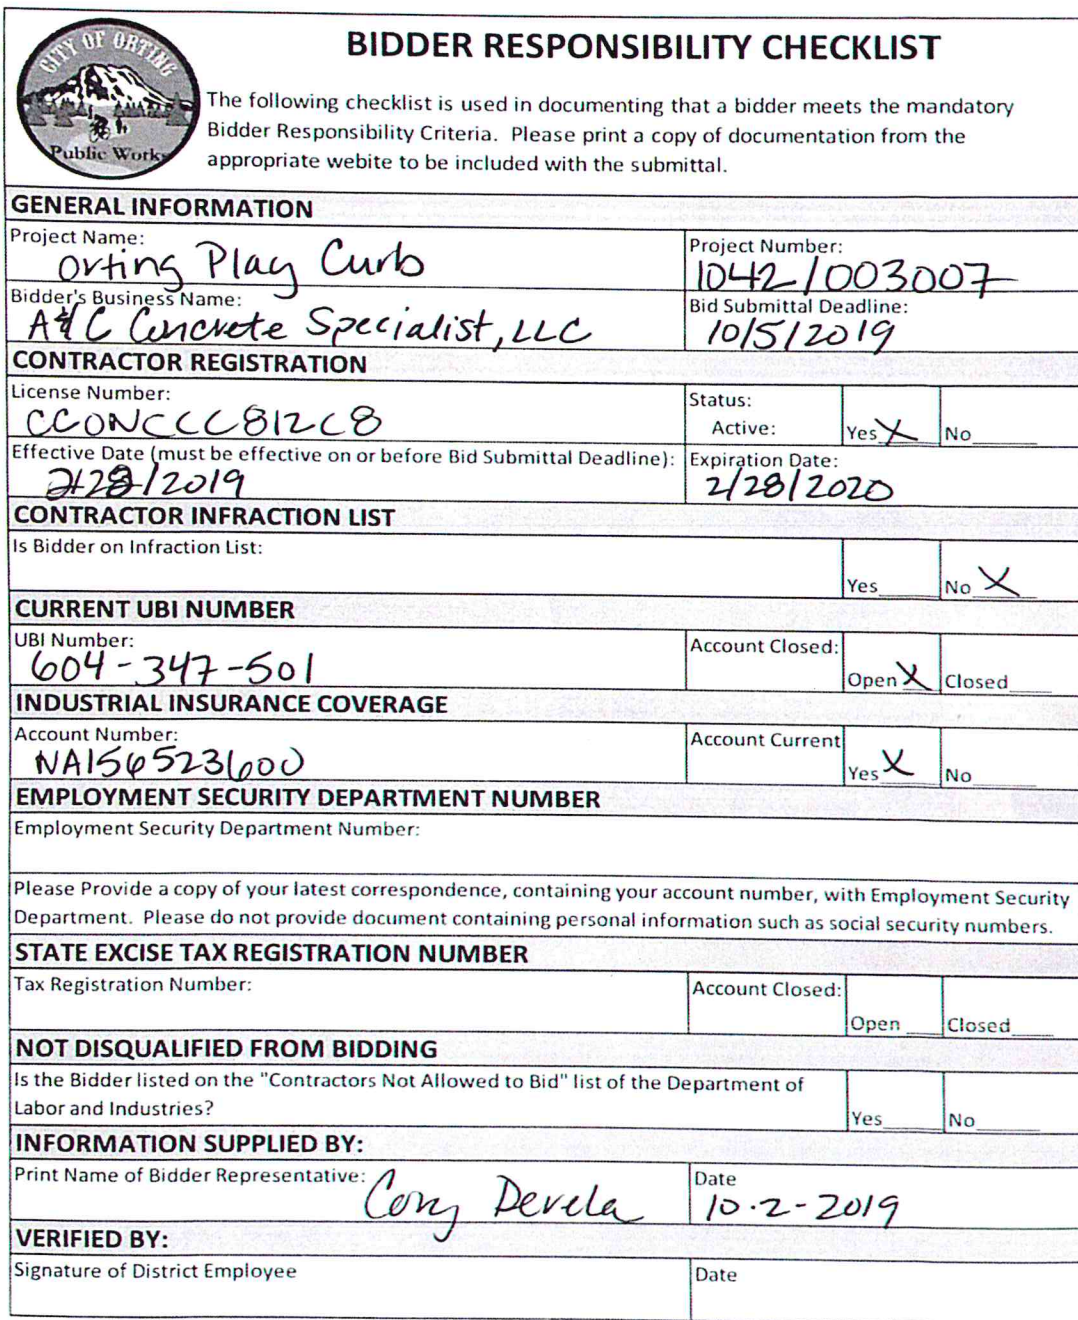 CITY OF ORTING
Public Works
BIDDER RESPONSIBILITY CHECKLIST
The following checklist is used in documenting that a bidder meets the mandatory
Bidder Responsibility Criteria. Please print a copy of documentation from the
appropriate webite to be included with the submittal.
GENERAL INFORMATION
Project Name:
Orting Play Curb
Project Number:
1042/003007
Bidder's Business Name:
A&C Concrete Specialist, LLC
Bid Submittal Deadline:
10/5/2019
CONTRACTOR REGISTRATION
License Number:
CCONCCC812C8
Status:
Active: Yes X No
Effective Date (must be effective on or before Bid Submittal Deadline):
2/28/2019
Expiration Date:
2/28/2020
CONTRACTOR INFRACTION LIST
Is Bidder on Infraction List:
Yes No X
CURRENT UBI NUMBER
UBI Number:
604-347-501
Account Closed:
Open X Closed
INDUSTRIAL INSURANCE COVERAGE
Account Number:
NA156523600
Account Current
Yes X No
EMPLOYMENT SECURITY DEPARTMENT NUMBER
Employment Security Department Number:
Please Provide a copy of your latest correspondence, containing your account number, with Employment Security
Department. Please do not provide document containing personal information such as social security numbers.
STATE EXCISE TAX REGISTRATION NUMBER
Tax Registration Number:
Account Closed:
Open Closed
NOT DISQUALIFIED FROM BIDDING
Is the Bidder listed on the "Contractors Not Allowed to Bid" list of the Department of
Labor and Industries?
Yes No
INFORMATION SUPPLIED BY:
Print Name of Bidder Representative: Cory Devela
Date
10-2-2019
VERIFIED BY:
Signature of District Employee
Date